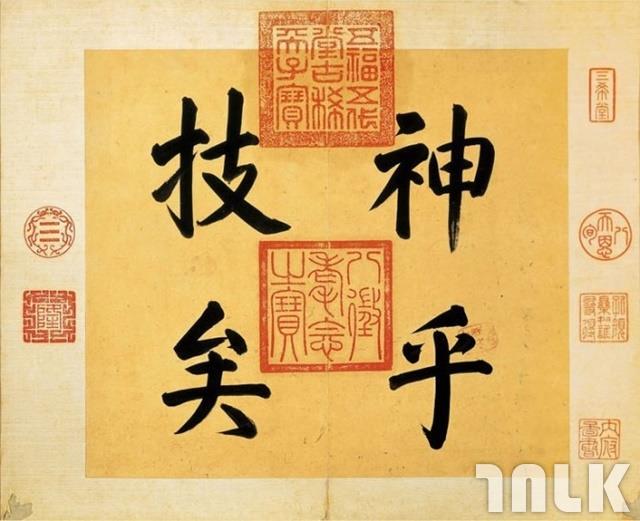 神乎
技矣
五福五代堂古稀天子寶
八徵耄念之寶
三希堂
TNLK